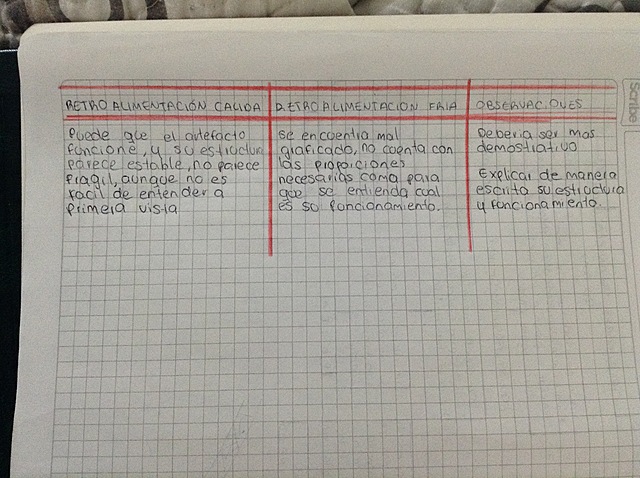 RETROALIMENTACIÓN CALIDA
Puede que el artefacto
funcione, y su estructura
parece estable, no parece
fragil, aunque no es
facil de entender a
primera vista
RETROALIMENTACION FRIA
se encuentra mal
graficado, no cuenta con
las proporciones
necesarias como para
que se entienda cual
es so funcionamiento.
OBSERVACIONES
Deberia ser mas
demostrativo
Explicar de manera
escrita su estructura
y funcionamiento.
Scribe